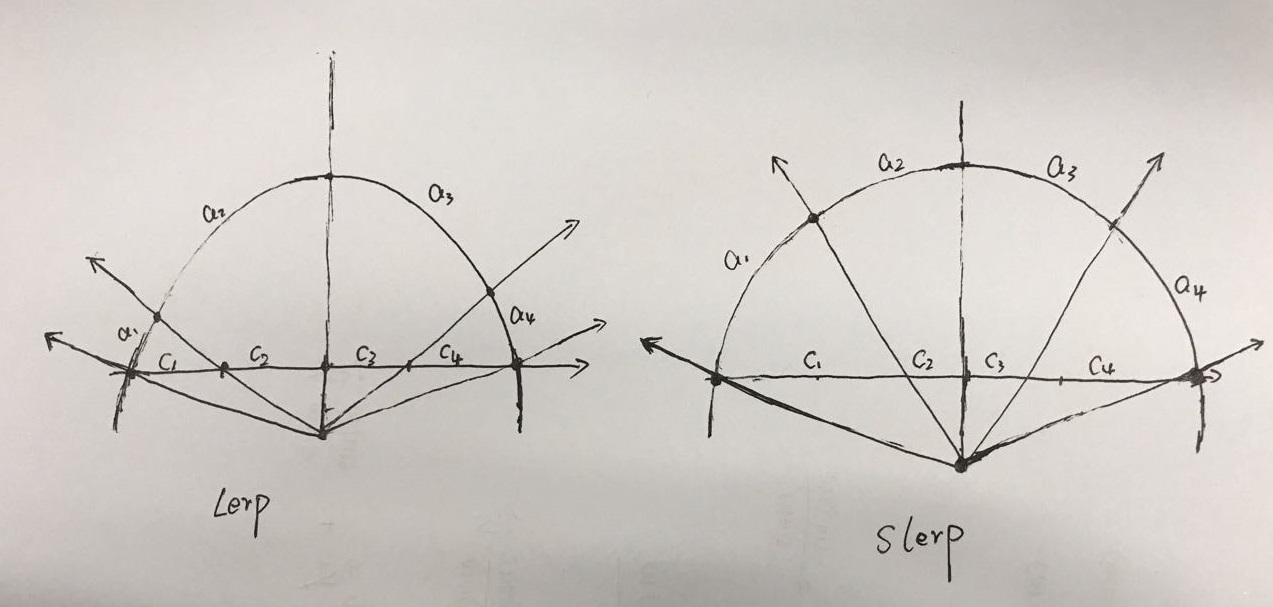 a₂ a₃
a₁ a₄
C₁ C₂ C₃ C₄
Lerp
a₂ a₃
a₁ a₄
C₁ C₂ C₃ C₄
Slerp